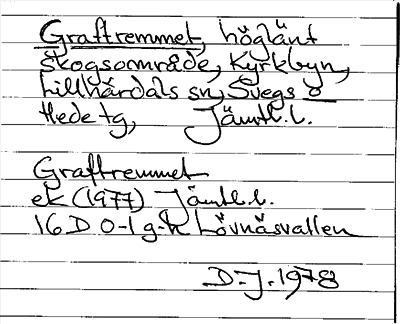 Graftremmet, höglänt
skogsområde, Kyrkbyn,
Lillhärdals sn, Svegs o
Hede tg, Jämtl. l.
Graftremmet
ek (1977) Jämtl. l.
16D 0-1 g-h Lövnäsvallen
D.J. 1978